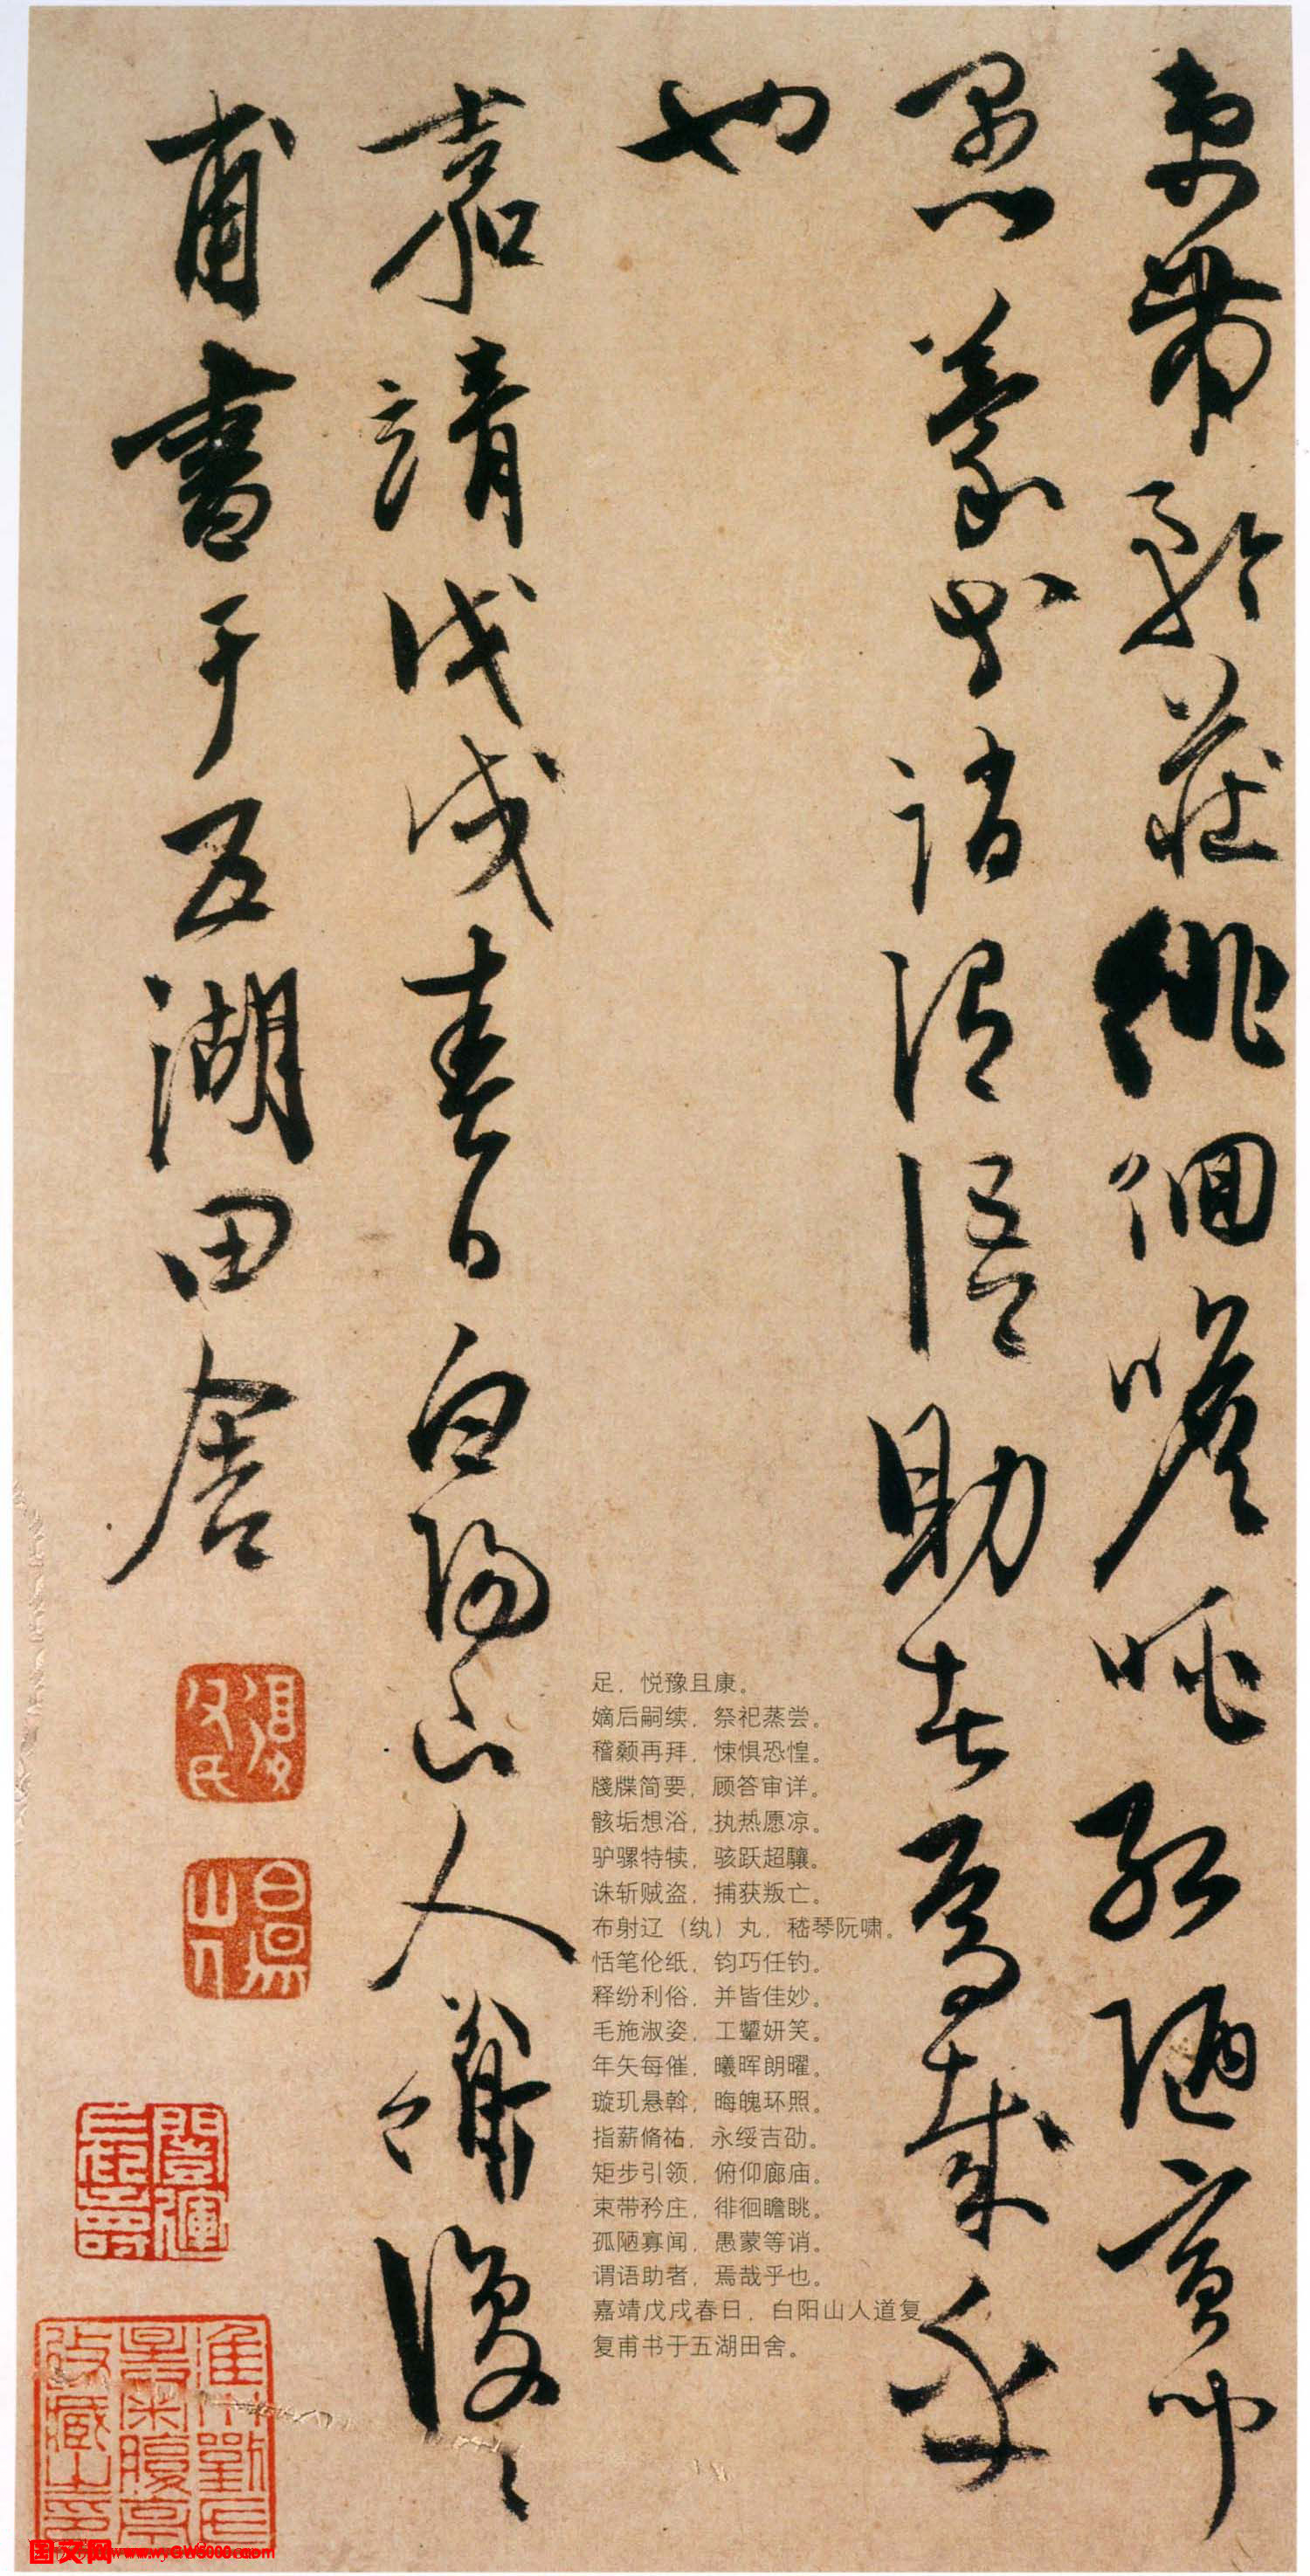 束帶矜莊徘徊瞻眺孤陋寡聞
愚蒙等誚謂語助者焉哉乎
也
嘉靖戊戌春日白陽山人道復復
甫書于五湖田舍
足，悦豫且康。
嫡后嗣续，祭祀蒸尝。
稽颡再拜，悚惧恐惶。
牋牒简要，顾答审详。
骸垢想浴，执热愿凉。
驴骡特犊，骇跃超骧。
诛斩贼盗，捕获叛亡。
布射辽（纨）丸，嵇琴阮啸。
恬笔伦纸，钧巧任钓。
释纷利俗，并皆佳妙。
毛施淑姿，工颦妍笑。
年矢每催，曦晖朗曜。
璇玑悬斡，晦魄环照。
指薪脩祜，永绥吉劭。
矩步引领，俯仰廊庙。
束带矜庄，徘徊瞻眺。
孤陋寡闻，愚蒙等诮。
谓语助者，焉哉乎也。
嘉靖戊戌春日，白阳山人道复
复甫书于五湖田舍。
復父氏
白陽山人